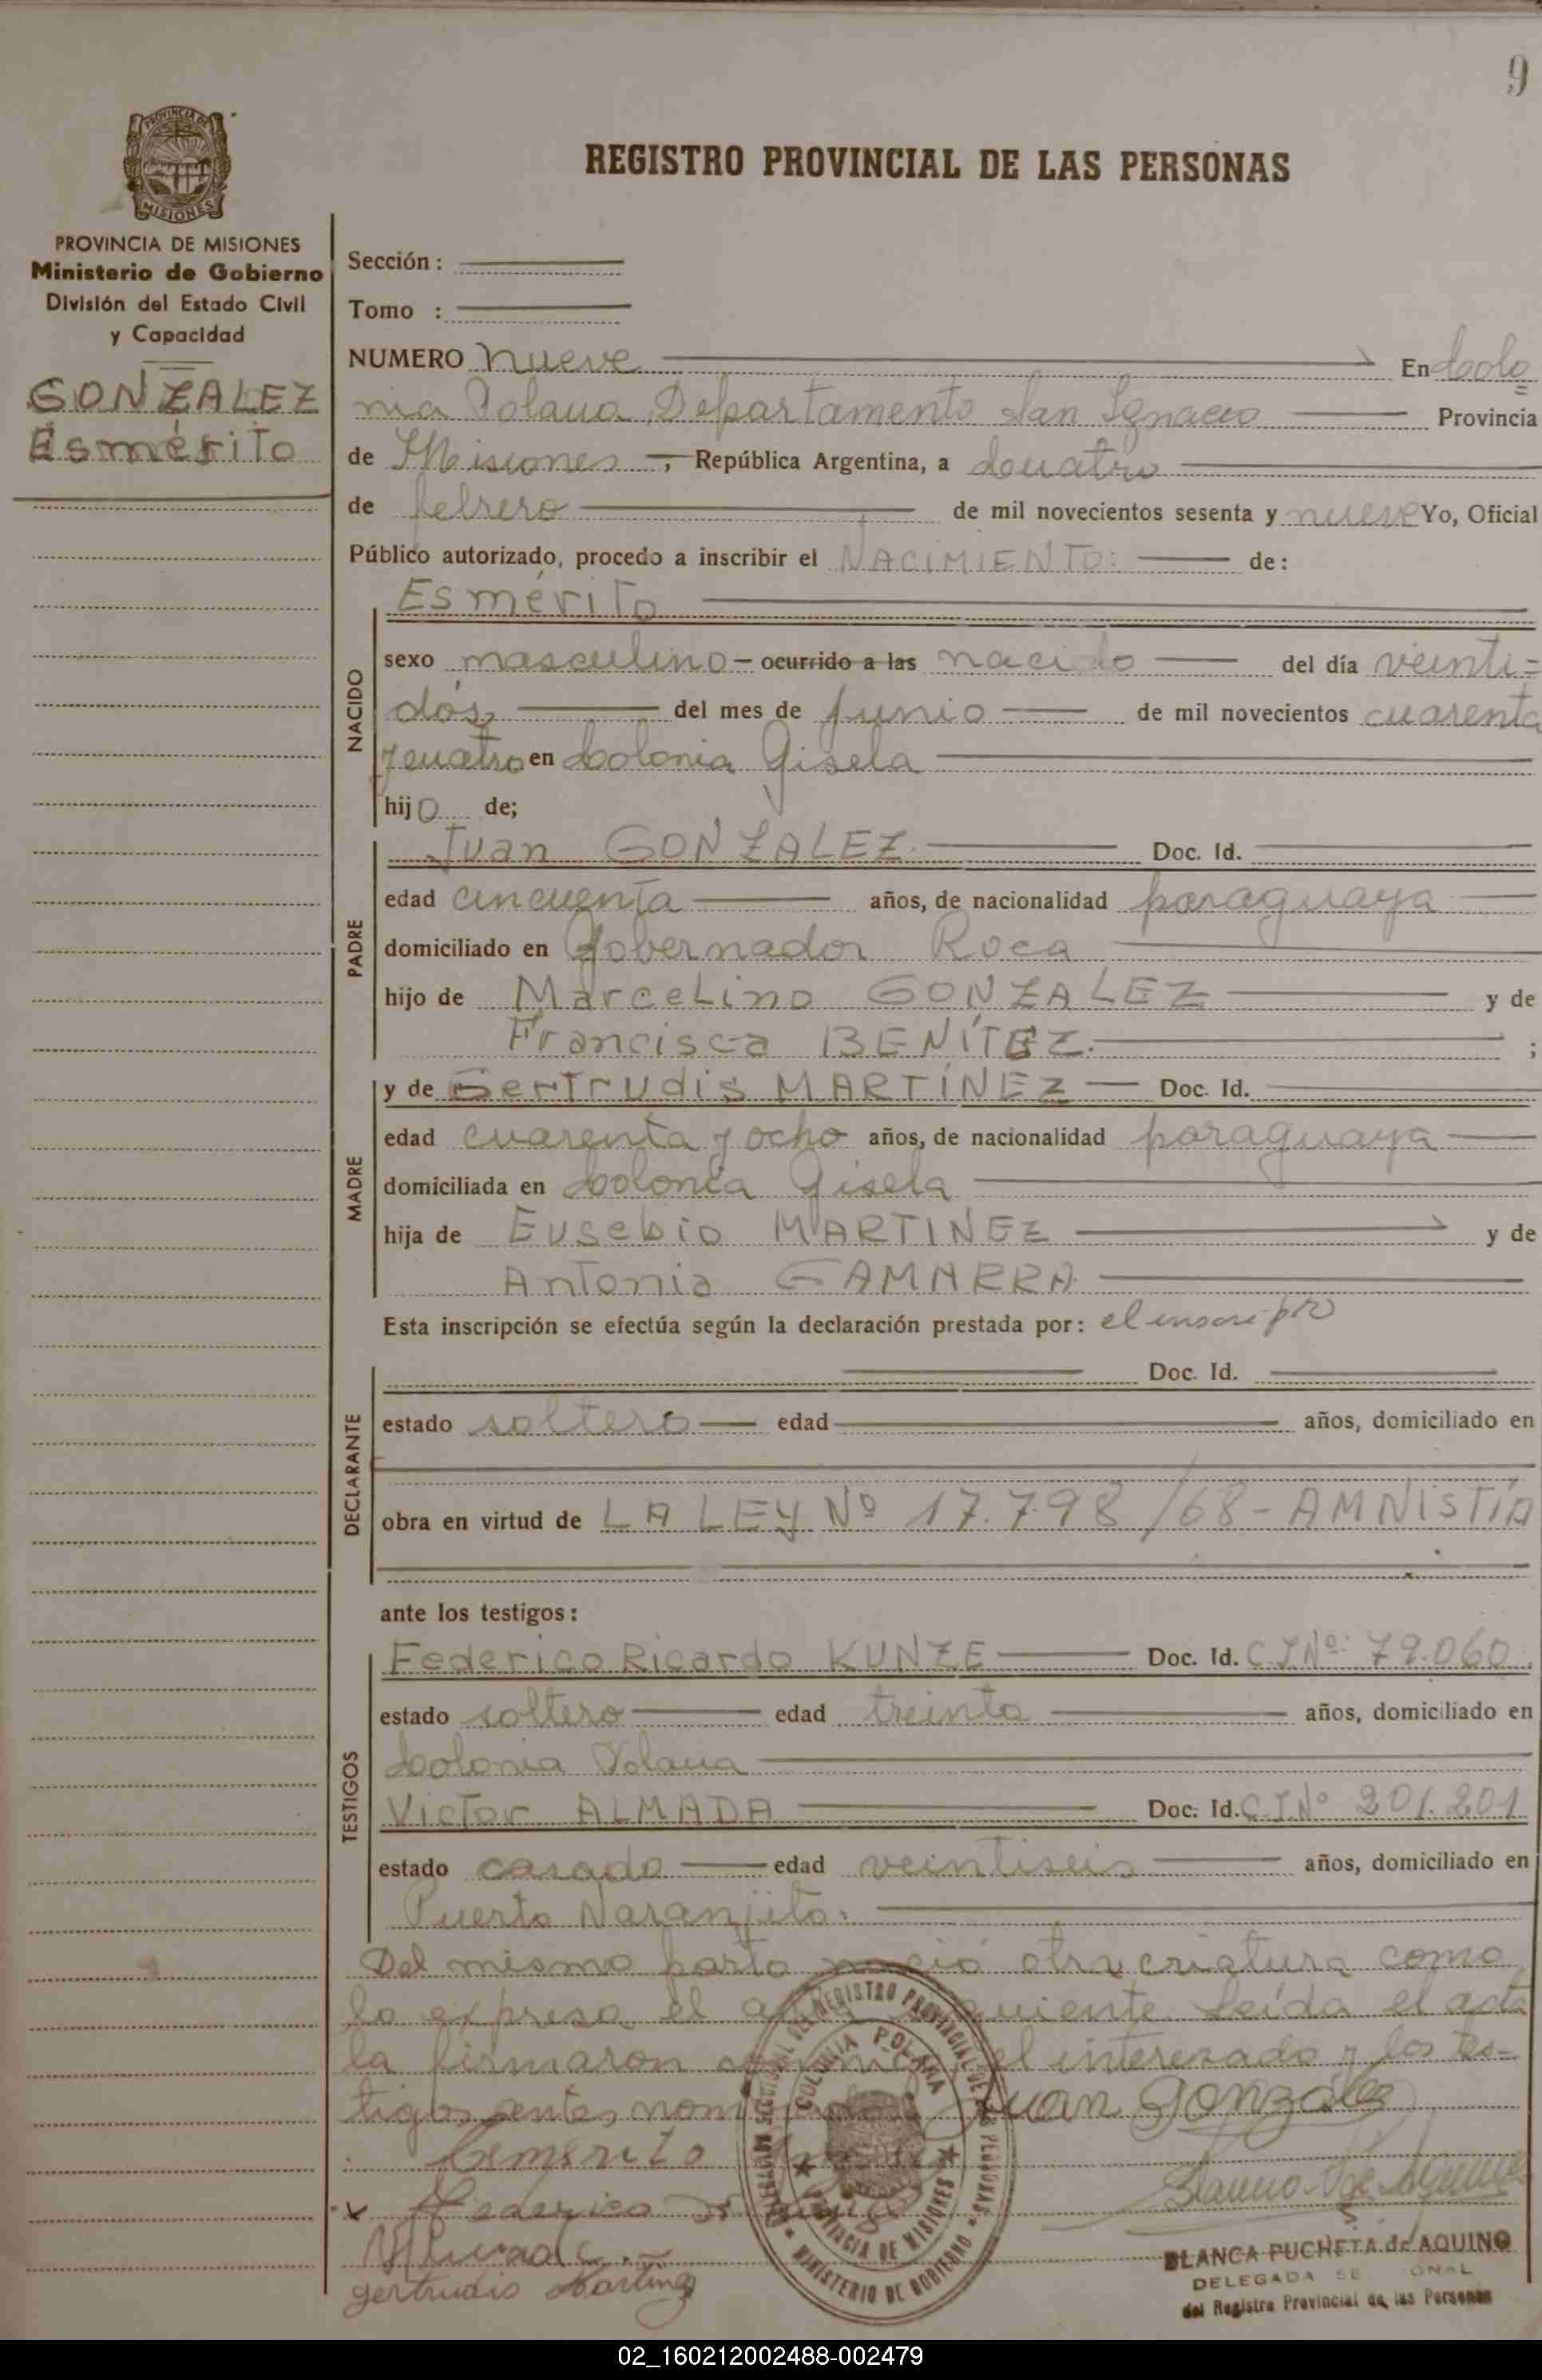 9
PROVINCIA DE
MISIONES
REGISTRO PROVINCIAL DE LAS PERSONAS
PROVINCIA DE MISIONES
Ministerio de Gobierno
División del Estado Civil
y Capacidad
GONZALEZ
Esmérito
Sección :
Tomo :
NUMERO nueve En Colo=
nia Polana, Departamento San Ignacio Provincia
de Misiones, República Argentina, a cuatro
de febrero de mil novecientos sesenta y nueve Yo, Oficial
Público autorizado, procedo a inscribir el NACIMIENTO: de:
NACIDO
Esmérito
sexo masculino - ocurrido a las nacido del día veinti=
dós, del mes de junio de mil novecientos cuarenta
y cuatro en Colonia Gisela
hijo de;
PADRE
Juan GONZALEZ. Doc. Id.
edad cincuenta años, de nacionalidad paraguaya
domiciliado en Gobernador Roca
hijo de Marcelino GONZALEZ y de
Francisca BENÍTEZ. ;
MADRE
y de Gertrudis MARTÍNEZ Doc. Id.
edad cuarenta y ocho años, de nacionalidad paraguaya
domiciliada en Colonia Gisela
hija de Eusebio MARTINEZ y de
Antonia GAMARRA.
Esta inscripción se efectúa según la declaración prestada por: el inscripto
DECLARANTE
Doc. Id.
estado soltero edad años, domiciliado en
obra en virtud de LA LEY Nº 17.798/68 - AMNISTÍA
ante los testigos:
TESTIGOS
Federico Ricardo KUNZE Doc. Id. C.I.Nº: 79.060.
estado soltero edad treinta años, domiciliado en
Colonia Polana
Victor ALMADA Doc. Id. C.I.Nº 201.201
estado casado edad veintiseis años, domiciliado en
Puerto Naranjito.
Del mismo parto nació otra criatura como
lo expresa el acta siguiente. Leída el acta
la firmaron conmigo, el interesado y los tes=
tigos antes nombrados. Juan Gonzalez
Esmerito
x Federico R Kunze
VAlmada
gertrudis Martinez
REGISTRO PROVINCIAL DE LAS PERSONAS
COLONIA POLANA
PROVINCIA DE MISIONES
MINISTERIO DE GOBIERNO
BLANCA PUCHETA de AQUINO
DELEGADA
del Registro Provincial de las Personas
02_160212002488-002479